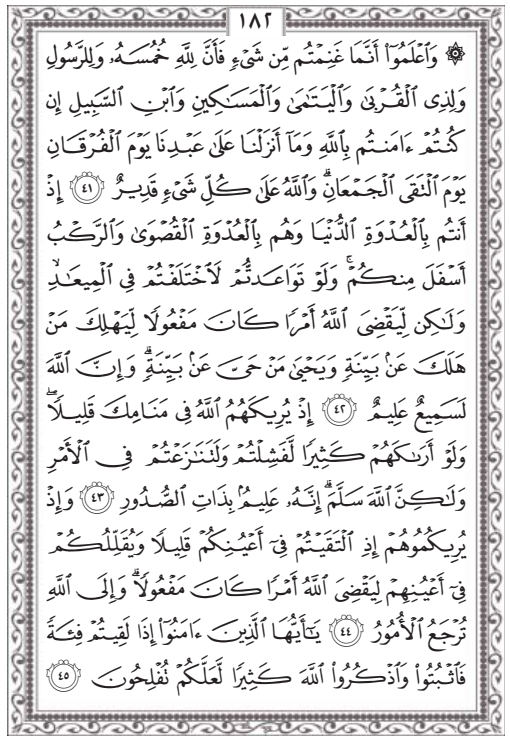 ١٨٢
۞ وَٱعۡلَمُوٓاْ أَنَّمَا غَنِمۡتُم مِّن شَيۡءٖ فَأَنَّ لِلَّهِ خُمُسَهُۥ وَلِلرَّسُولِ
وَلِذِي ٱلۡقُرۡبَىٰ وَٱلۡيَتَٰمَىٰ وَٱلۡمَسَٰكِينِ وَٱبۡنِ ٱلسَّبِيلِ إِن
كُنتُمۡ ءَامَنتُم بِٱللَّهِ وَمَآ أَنزَلۡنَا عَلَىٰ عَبۡدِنَا يَوۡمَ ٱلۡفُرۡقَانِ
يَوۡمَ ٱلۡتَقَى ٱلۡجَمۡعَانِۗ وَٱللَّهُ عَلَىٰ كُلِّ شَيۡءٖ قَدِيرٌ ٤١ إِذۡ
أَنتُم بِٱلۡعُدۡوَةِ ٱلدُّنۡيَا وَهُم بِٱلۡعُدۡوَةِ ٱلۡقُصۡوَىٰ وَٱلرَّكۡبُ
أَسۡفَلَ مِنكُمۡۚ وَلَوۡ تَوَاعَدتُّمۡ لَٱخۡتَلَفۡتُمۡ فِي ٱلۡمِيعَٰدِ
وَلَٰكِن لِّيَقۡضِيَ ٱللَّهُ أَمۡرٗا كَانَ مَفۡعُولٗا لِّيَهۡلِكَ مَنۡ
هَلَكَ عَنۢ بَيِّنَةٖ وَيَحۡيَىٰ مَنۡ حَيَّ عَنۢ بَيِّنَةٖۗ وَإِنَّ ٱللَّهَ
لَسَمِيعٌ عَلِيمٌ ٤٢ إِذۡ يُرِيكَهُمُ ٱللَّهُ فِي مَنَامِكَ قَلِيلٗاۖ
وَلَوۡ أَرَىٰكَهُمۡ كَثِيرٗا لَّفَشِلۡتُمۡ وَلَتَنَٰزَعۡتُمۡ فِي ٱلۡأَمۡرِ
وَلَٰكِنَّ ٱللَّهَ سَلَّمَۚ إِنَّهُۥ عَلِيمُۢ بِذَاتِ ٱلصُّدُورِ ٤٣ وَإِذۡ
يُرِيكُمُوهُمۡ إِذِ ٱلۡتَقَيۡتُمۡ فِيٓ أَعۡيُنِكُمۡ قَلِيلٗا وَيُقَلِّلُكُمۡ
فِيٓ أَعۡيُنِهِمۡ لِيَقۡضِيَ ٱللَّهُ أَمۡرٗا كَانَ مَفۡعُولٗاۗ وَإِلَى ٱللَّهِ
تُرۡجَعُ ٱلۡأُمُورُ ٤٤ يَٰٓأَيُّهَا ٱلَّذِينَ ءَامَنُوٓاْ إِذَا لَقِيتُمۡ فِئَةٗ
فَٱثۡبُتُواْ وَٱذۡكُرُواْ ٱللَّهَ كَثِيرٗا لَّعَلَّكُمۡ تُفۡلِحُونَ ٤٥